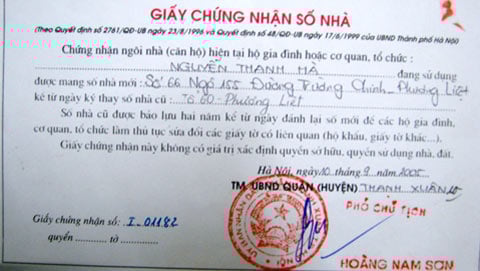 GIẤY CHỨNG NHẬN SỐ NHÀ
(Theo Quyết định số 2761/QĐ-UB ngày 23/8/1996 và Quyết định số 48/QĐ-UB ngày 17/6/1999 của UBND Thành phố Hà Nội)
Chứng nhận ngôi nhà (căn hộ) hiện tại hộ gia đình hoặc cơ quan, tổ chức :
NGUYỄN THANH HÀ đang sử dụng
được mang số nhà mới : Số 66 Ngõ 155 Đường Trường Chinh - Phương Liệt
kể từ ngày ký thay số nhà cũ : Tổ 60 - Phương Liệt
Số nhà cũ được bảo lưu hai năm kể từ ngày đánh lại số mới để các hộ gia đình,
cơ quan, tổ chức làm thủ tục sửa đổi các giấy tờ có liên quan (hộ khẩu, giấy tờ khác...).
Giấy chứng nhận này không có giá trị xác định quyền sở hữu, quyền sử dụng nhà, đất.
Hà Nội, ngày 10 tháng 9 năm 2005
TM. UBND QUẬN (HUYỆN) THANH XUÂN
PHÓ CHỦ TỊCH
Giấy chứng nhận số: I-01182
quyển ........... tờ ...........
HOÀNG NAM SƠN